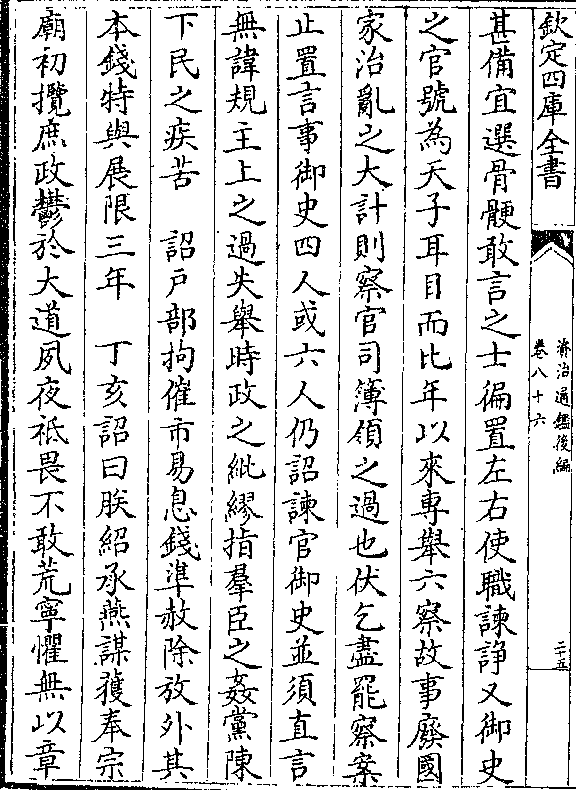 欽定四庫全書
資治通鑑後編
卷八十六
二十五
甚備宜選骨骾敢言之士徧置左右使職諫諍又御史
之官號為天子耳目而比年以來專舉六察故事廢國
家治亂之大計則察官司簿領之過也伏乞盡罷察案
止置言事御史四人或六人仍詔諫官御史並須直言
無諱規主上之過失舉時政之紕繆指羣臣之姦黨陳
下民之疾苦 詔戸部拘催市易息錢準赦除放外其
本錢特與展限三年 丁亥詔曰朕紹承燕謀獲奉宗
廟初攬庶政鬱於大道夙夜祗畏不敢荒寧懼無以章